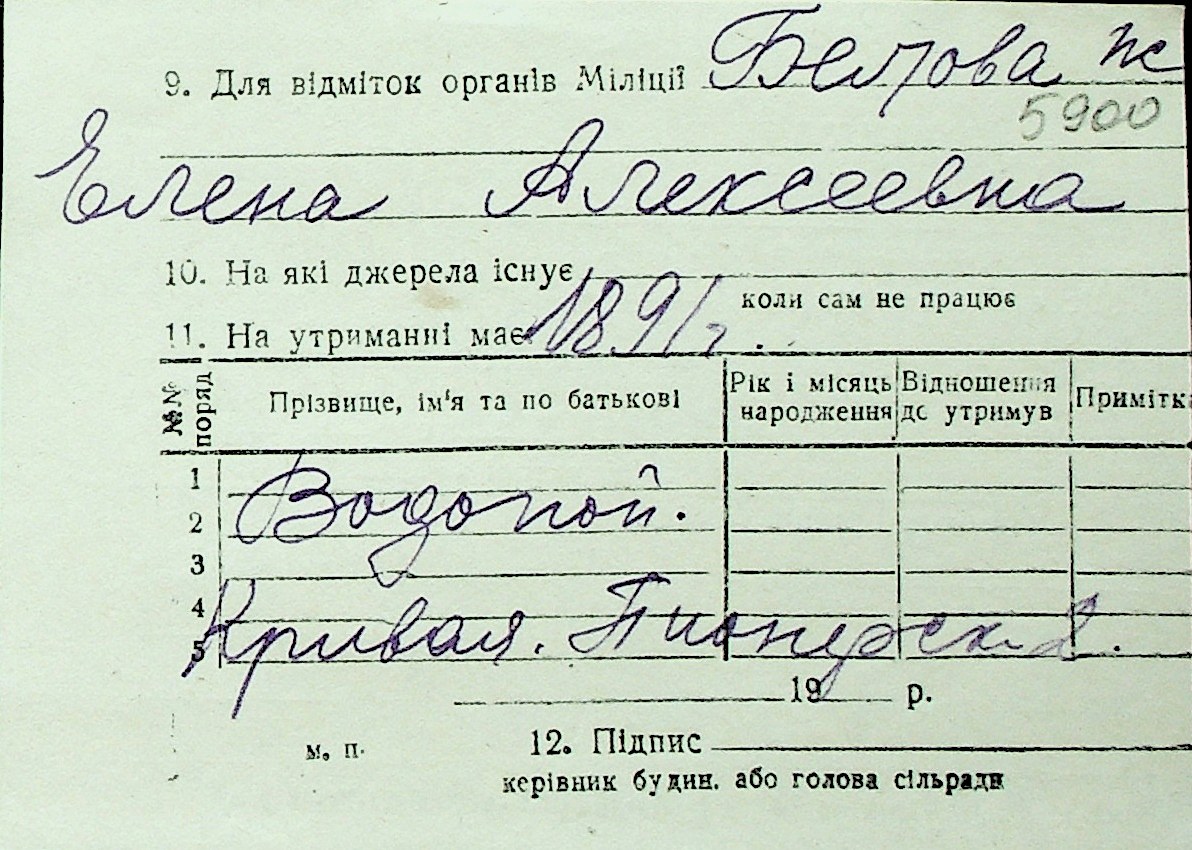 9. Для відміток органів Міліції
5900
Елена Алексеевна
10. На які джерела існує
коли сам не працює
11. На утриманні має 1891 г.
№№ поряд
Прізвище, ім'я та по батькові
Рік і місяць народження
Відношення до утримув
Примітка
1
2
Водопой.
3
4
5
Кривая. Пионерская 2.
19 р.
м. п.
12. Підпис
керівник будин. або голова сільради